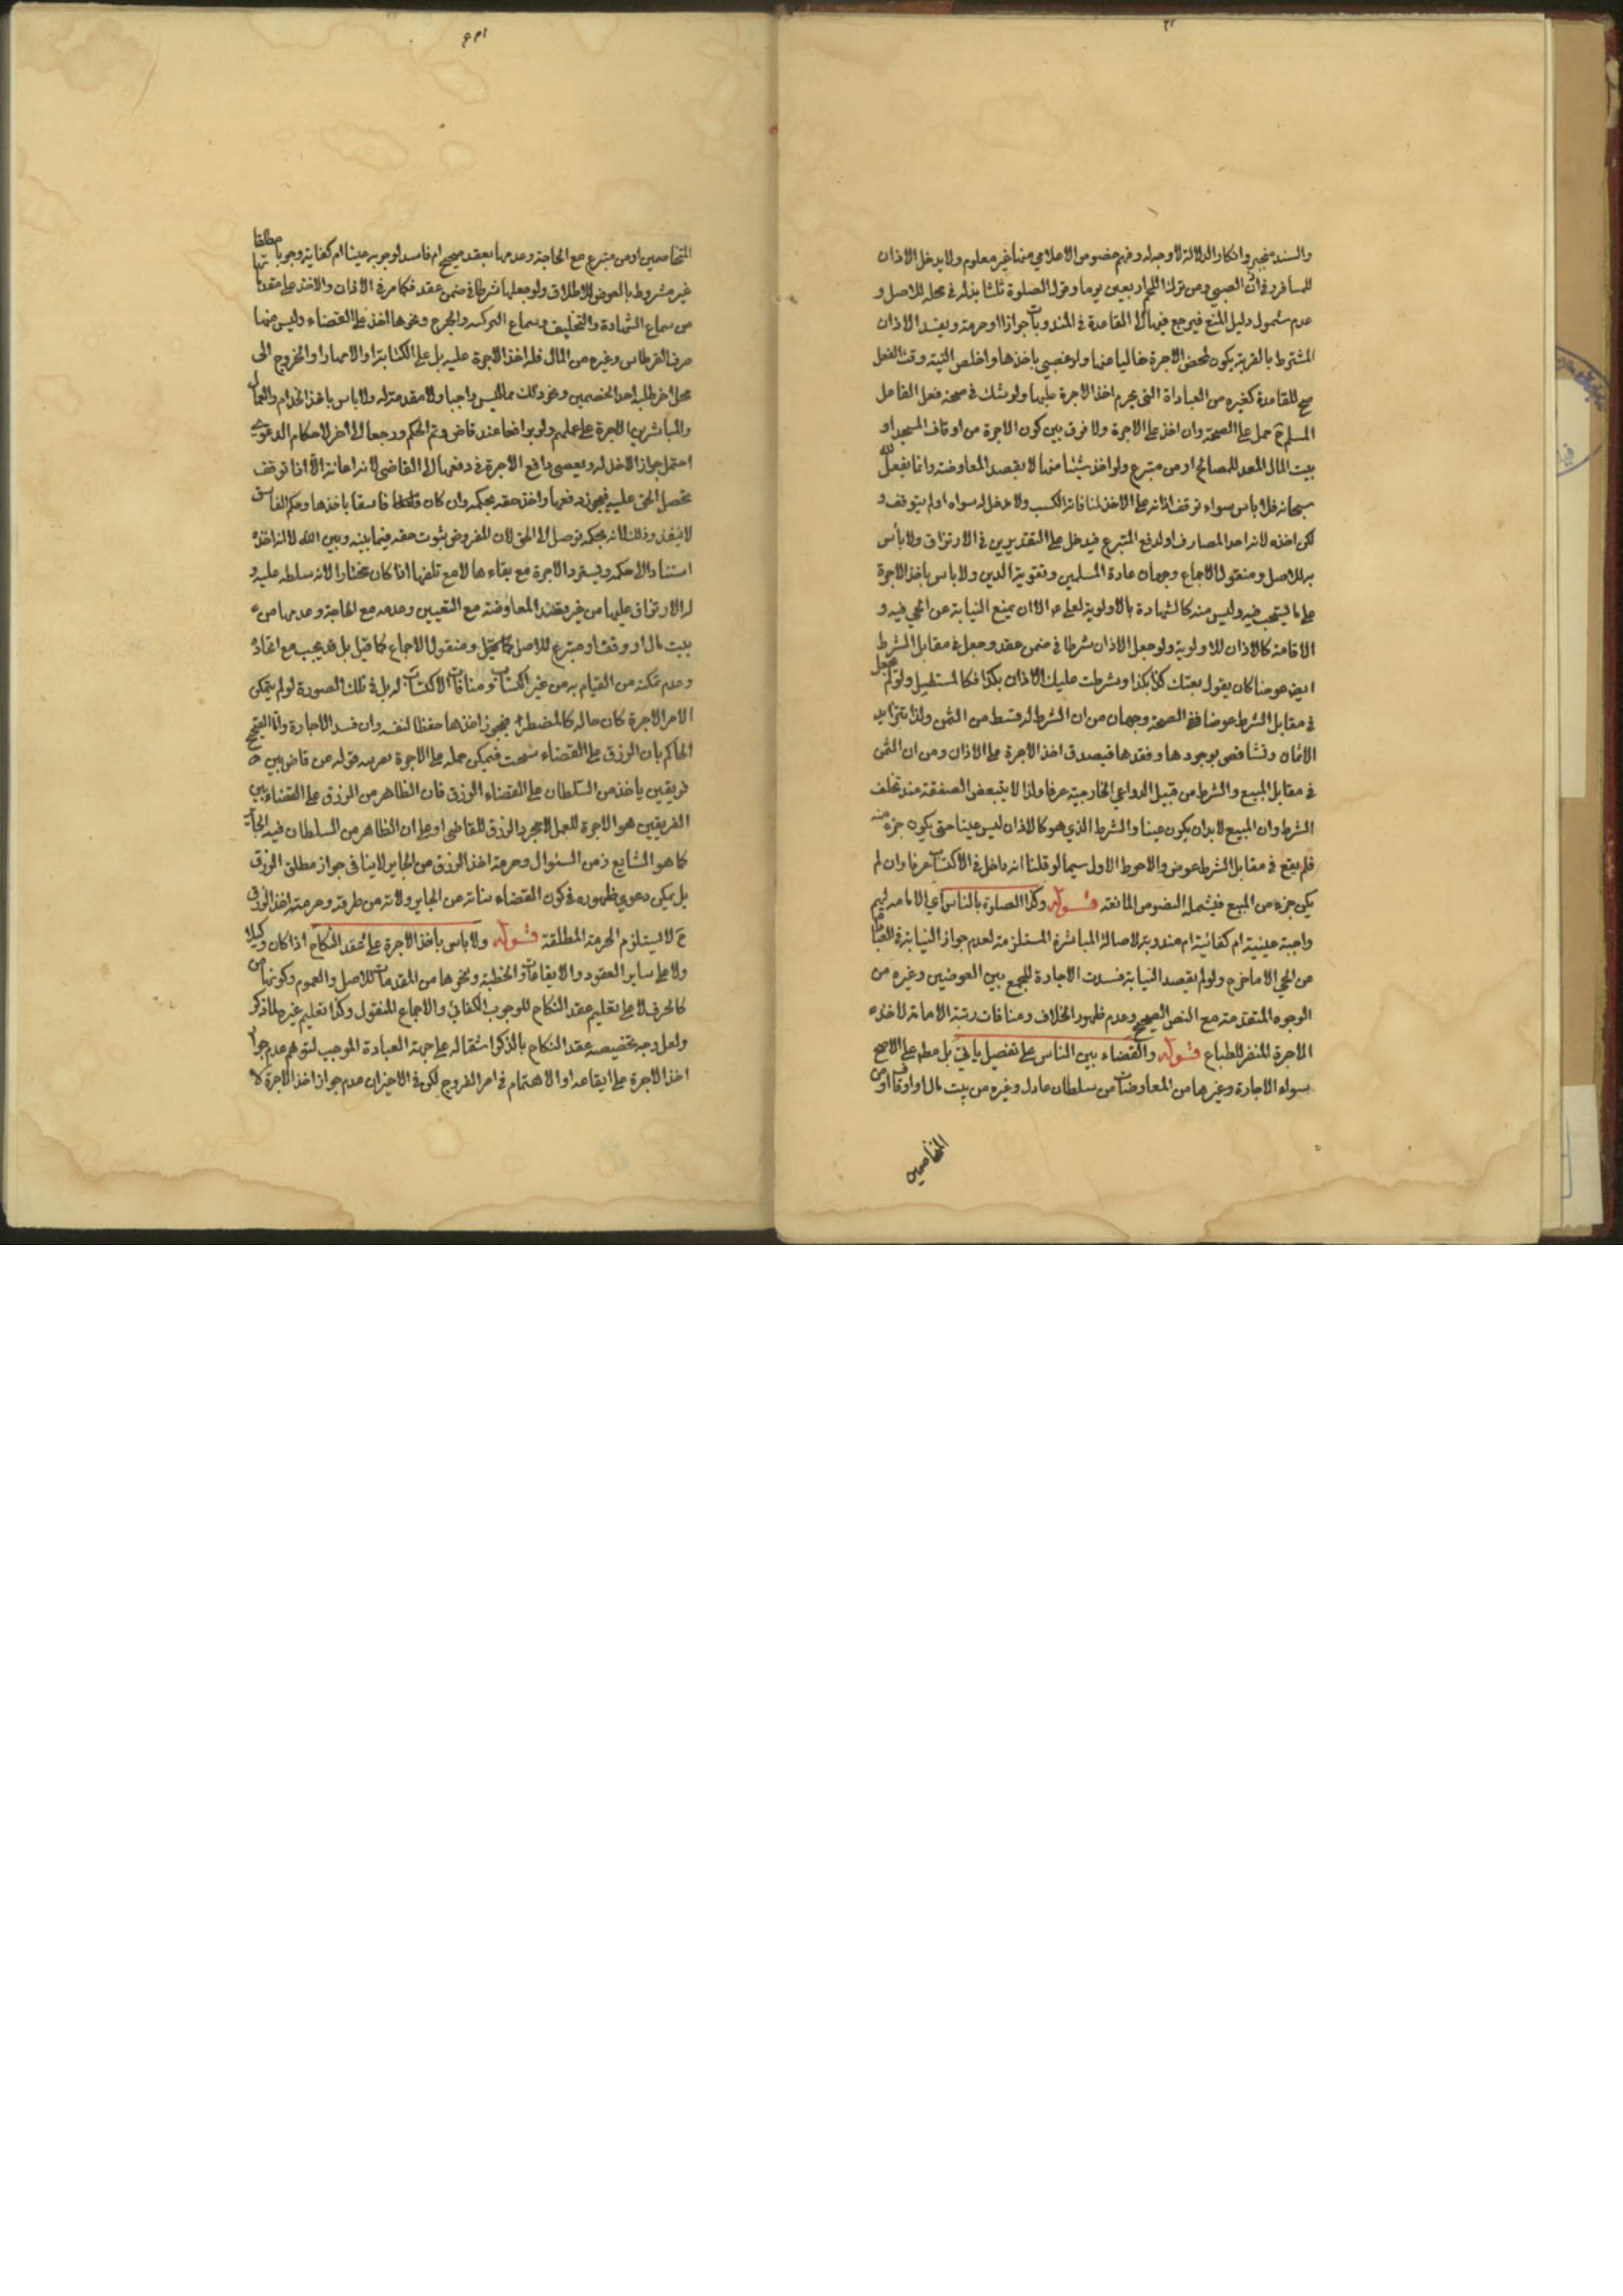 والسند منجبر وانكار الدلالة لا وجه له وفهم خصوص الاعلامي منها غير معلوم ولا يدخل الاذان
للمسافر وفي اذن الصبي ومن ترك اللحم اربعين يوما وقول الصلوة ثلثا بذله في محله للاصل و
عدم شمول دليل المنع فيرجع فيها الى القاعدة في المندوبات جوازا او حرمة ويفسد الاذان
المشترط بالقربة بكونه لمحض الاجرة خاليا عنها ولو عصى باخذها واخلص النية وقت الفعل
صح للقاعدة كغيره من العبادات التي يحرم اخذ الاجرة عليها ولو شك في صحة فعل الفاعل
المسلم ح حمل على الصحة وان اخذ على الاجرة ولا فرق بين كون الاجرة من اوقاف المسجد او
بيت المال المعد للمصالح او من متبرع ولو اخذ شيئا منها لا بقصد المعاوضة وانما يفعل لله
سبحانه فلا باس سواء توقف اذانه على الاخذ لمنافاته الكسب ولا دخل له سواه او لم يتوقف و
لكن اخذه لانه احد المصارف او لدفع المتبرع فيدخل على التقديرين في الارتزاق ولا بأس
به للاصل ومنقول الاجماع وجهان عادة المسلمين وتقوية الدين ولا باس باخذ الاجرة
على ما يستحب فيه وليس منه كالشهادة بالاولوية لعلي الا ان يمنع النيابة عن الحي فيه و
الاقامة كالاذان للاولوية ولو جعل الاذان شرطا في ضمن عقد وجعل في مقابل الشرط
ايض عوضا كان يقول بعتك كذا بكذا وشرطت عليك الاذان بكذا فكالمستقل ولو لم يجعل
في مقابل الشرط عوضا ففي الصحة وجهان من ان الشرط له قسط من الثمن ولذا تتزايد
الاثمان وتتناقص بوجودها وفقدها فيصدق اخذ الاجرة على الاذان ومن ان الثمن
في مقابل المبيع والشرط من قبيل الدواعي الخارجية عرفا ولذا لا يتبعض الصفقة عند تخلف
الشرط وان المبيع لابد ان يكون عينا والشرط الذي هو كالاذان ليس عينا حتى يكون جزء منه
فلم يقع في مقابل الشرط عوض والاحوط الاول سيما لو قلنا انه داخل في الاكتساب عرفا وان لم
يكن جزء من المبيع فيشمله النصوص المانعة قوله وكذا الصلوة بالناس اي الامامة لهم
واجبة عينية ام كفائية ام مندوبة لاصالة المباشرة المستلزمة لعدم جواز النيابة في العبادات
عن الحي الا ما خرج ولو لم يقصد النيابة فسدت الاجارة للجمع بين العوضين وغيره من
الوجوه المتقدمة مع النص الصحيح وعدم ظهور الخلاف ومنافات رتبة الامامة لاخذ
الاجرة المنفر للطباع قوله والقضاء بين الناس على تفصيل ياتي بل مطم على الاصح
سواء الاجارة وغيرها من المعاوضات من سلطان عادل وغيره من بيت مال او اوقاف او من
المتخاصمين
المتخاصمين او من متبرع مع الحاجة وعدمها بعقد صحيح ام فاسد لوجوبه عينا ام كفاية وجوبا مطلقا
غير مشروط بالعوض للاطلاق ولو جعلها شرطا في ضمن عقد فكما مر في الاذان والاخذ على مقدماتها
من سماع الشهادة والتحليف وسماع التزكية والجرح ونحوها اخذ على القضاء وليس منها
صرف القرطاس وغيره من المال فله اخذ الاجرة عليه بل على الكتابة او الامهار او الخروج الى
محل اخر لطلب احد الخصمين ونحو ذلك مما ليس واجبا ولا مقدمة له ولا باس باخذ الخدام والعمال
والمباشرين الاجرة على عملهم ولو ترافعا عند قاض وتم الحكم ورجعا الى اخر لاحكام الدعوى
احتمل جواز الاخذ له ويعصى دافع الاجرة في دفعها الى القاضي لانه اعانة الا اذا توقف
تحصيل الحق عليه فيجوز دفعها واخذ حقه بحكمه وان كان فاسقا باخذها وحكم الفاسق
لا ينفذ وذلك لانه بحكمه توصل الى الحق لان المفروض ثبوت حقه فيما بينه وبين الله لا انه اخذه
استنادا الى حكمه ويسترد الاجرة مع بقاءها لا مع تلفها اذا كان مختارا لانه سلطه عليه و
له الارتزاق عليها من غير عقد المعاوضة مع التعيين وعدمه مع الحاجة وعدمها من
بيت مال او وقف او متبرع للاصل ومنقول الاجماع كما قيل بل قد يجب مع اتحاده
وعدم تمكنه من القيام به من غير اكتساب ومنافات الاكتساب له بل في تلك الصورة لو لم يتمكن
الا من الاجرة كان حاله كالمضطر فيجوز اخذها حفظا لنفسه وان فسد الاجارة واما الصحيح
الحاكم بان الرزق على القضاء سحت فيمكن حمله على الاجرة بقرينة قوله عن قاض بين
فريقين ياخذ من السلطان على القضاء الرزق فان الظاهر من الرزق على القضاء بين
الفريقين هو الاجرة للعمل لا مجرد الرزق للقاضي او على ان الظاهر من السلطان فيه الجائر
كما هو الشايع زمن السئوال وحرمة اخذ الرزق من الجاير لا ينافي جواز مطلق الرزق
بل يمكن دعوى ظهوره في كون القضاء من الجاير ولانه من طرفه وحرمة اخذ الرزق
ح لا يستلزم الحرمة المطلقة قوله ولا باس باخذ الاجرة على عقد النكاح اذا كان وكيلا
ولا على ساير العقود والايقاعات والخطبة ونحوها من المقدمات للاصل والعموم وكونها من
كالحرف لا على تعليم عقد النكاح للوجوب الكفائي والاجماع المنقول وكذا تعليم غيره
ولعل وجه تخصيصه عقد النكاح بالذكر اشتماله على جهة العبادة الموجب لتوهم عدم جواز
اخذ الاجرة على ايقاعه او الاهتمام في امر الفروج لكن في الاخير ان عدم جواز اخذ الاجرة لا